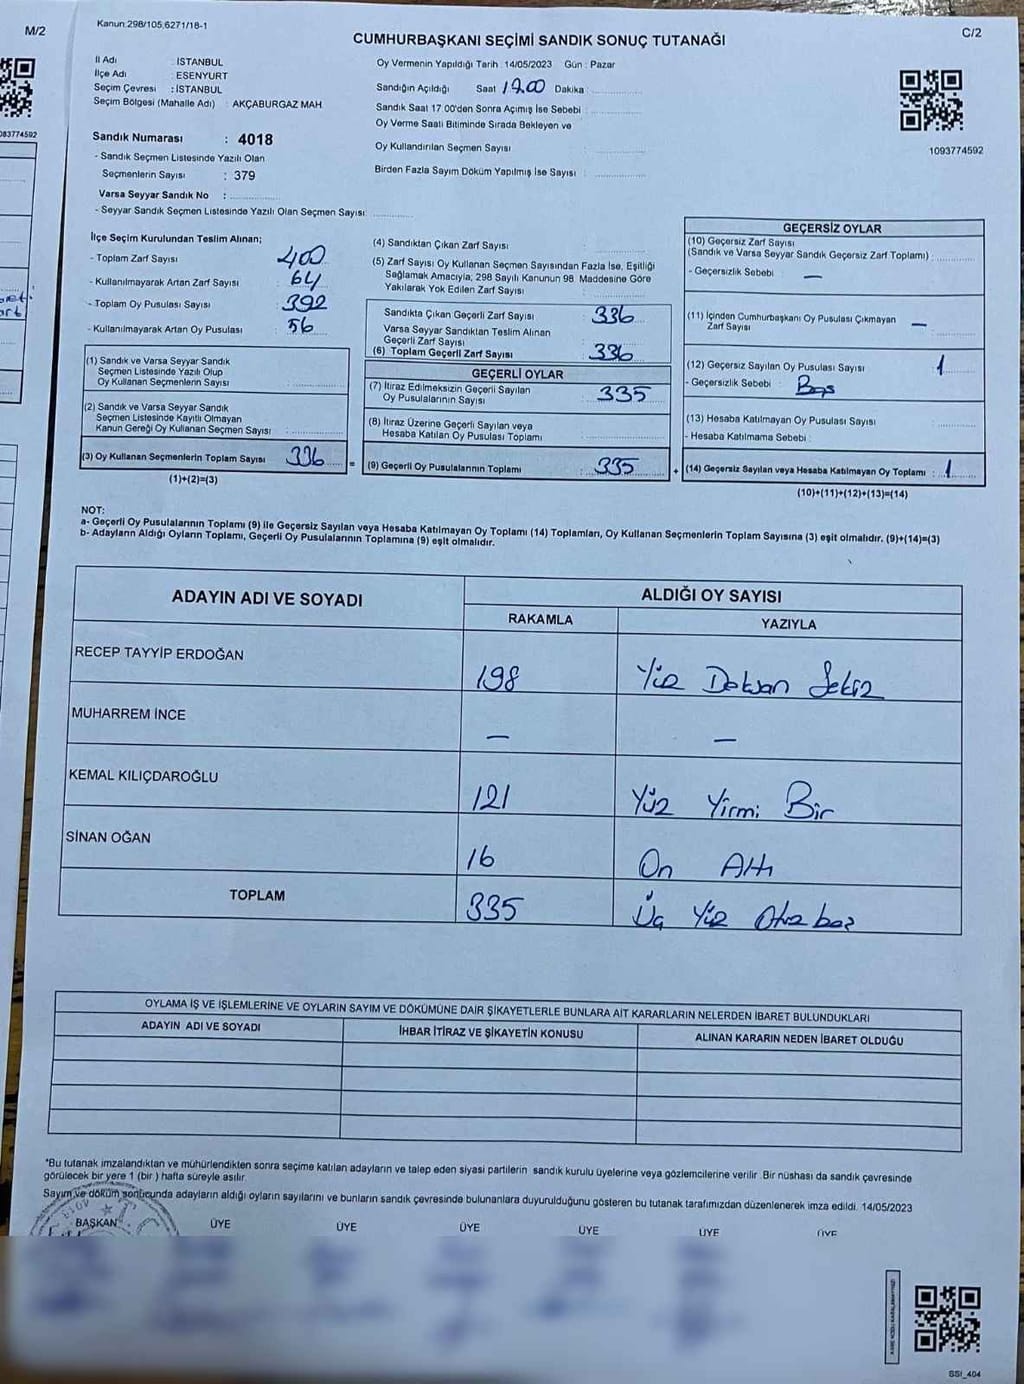 M/2
Kanun:298/105,6271/18-1
C/2
CUMHURBAŞKANI SEÇİMİ SANDIK SONUÇ TUTANAĞI
İl Adı : İSTANBUL
İlçe Adı : ESENYURT
Seçim Çevresi : İSTANBUL
Seçim Bölgesi (Mahalle Adı) : AKÇABURGAZ MAH.
Oy Vermenin Yapıldığı Tarih : 14/05/2023 Gün : Pazar
Sandığın Açıldığı Saat Dakika
Sandık Saat 17:00'den Sonra Açımış İse Sebebi
Oy Verme Saati Bitiminde Sırada Bekleyen ve
Oy Kullandırılan Seçmen Sayısı
Birden Fazla Sayım Döküm Yapılmış İse Sayısı
083774592
1093774592
Sandık Numarası : 4018
- Sandık Seçmen Listesinde Yazılı Olan
Seçmenlerin Sayısı : 379
Varsa Seyyar Sandık No :
- Seyyar Sandık Seçmen Listesinde Yazılı Olan Seçmen Sayısı:
İlçe Seçim Kurulundan Teslim Alınan;
- Toplam Zarf Sayısı 400
- Kullanılmayarak Artan Zarf Sayısı : 64
- Toplam Oy Pusulası Sayısı : 392
- Kullanılmayarak Artan Oy Pusulası : 56
(1) Sandık ve Varsa Seyyar Sandık
Seçmen Listesinde Yazılı Olup
Oy Kullanan Seçmenlerin Sayısı :
(2) Sandık ve Varsa Seyyar Sandık
Seçmen Listesinde Kayıtlı Olmayan
Kanun Gereği Oy Kullanan Seçmen Sayısı :
(3) Oy Kullanan Seçmenlerin Toplam Sayısı 336
(1)+(2)=(3)
(4) Sandıktan Çıkan Zarf Sayısı
(5) Zarf Sayısı Oy Kullanan Seçmen Sayısından Fazla İse, Eşitliği
Sağlamak Amacıyla, 298 Sayılı Kanunun 98. Maddesine Göre
Yakılarak Yok Edilen Zarf Sayısı
Sandıkta Çıkan Geçerli Zarf Sayısı : 336
Varsa Seyyar Sandıktan Teslim Alınan
Geçerli Zarf Sayısı
(6) Toplam Geçerli Zarf Sayısı : 336
GEÇERLİ OYLAR
(7) İtiraz Edilmeksizin Geçerli Sayılan
Oy Pusulalarının Sayısı : 335
(8) İtiraz Üzerine Geçerli Sayılan veya
Hesaba Katılan Oy Pusulası Toplamı
= (9) Geçerli Oy Pusulalarının Toplamı : 335
GEÇERSİZ OYLAR
(10) Geçersiz Zarf Sayısı
(Sandık ve Varsa Seyyar Sandık Geçersiz Zarf Toplamı) :
- Geçersizlik Sebebi : —
(11) İçinden Cumhurbaşkanı Oy Pusulası Çıkmayan
Zarf Sayısı —
(12) Geçersiz Sayılan Oy Pusulası Sayısı : 1
- Geçersizlik Sebebi : Boş
(13) Hesaba Katılmayan Oy Pusulası Sayısı :
- Hesaba Katılmama Sebebi :
+ (14) Geçersiz Sayılan veya Hesaba Katılmayan Oy Toplamı : 1
(10)+(11)+(12)+(13)=(14)
NOT:
a- Geçerli Oy Pusulalarının Toplamı (9) ile Geçersiz Sayılan veya Hesaba Katılmayan Oy Toplamı (14) Toplamları, Oy Kullanan Seçmenlerin Toplam Sayısına (3) eşit olmalıdır. (9)+(14)=(3)
b- Adayların Aldığı Oyların Toplamı, Geçerli Oy Pusulalarının Toplamına (9) eşit olmalıdır.
ADAYIN ADI VE SOYADI
ALDIĞI OY SAYISI
RAKAMLA YAZIYLA
RECEP TAYYİP ERDOĞAN 198 Yüz Doksan Sekiz
MUHARREM İNCE — —
KEMAL KILIÇDAROĞLU 121 Yüz Yirmi Bir
SİNAN OĞAN 16 On Altı
TOPLAM 335 Üç Yüz Otuz beş
OYLAMA İŞ VE İŞLEMLERİNE VE OYLARIN SAYIM VE DÖKÜMÜNE DAİR ŞİKAYETLERLE BUNLARA AİT KARARLARIN NELERDEN İBARET BULUNDUKLARI
ADAYIN ADI VE SOYADI İHBAR İTİRAZ VE ŞİKAYETİN KONUSU ALINAN KARARIN NEDEN İBARET OLDUĞU
*Bu tutanak imzalandıktan ve mühürlendikten sonra seçime katılan adayların ve talep eden siyasi partilerin sandık kurulu üyelerine veya gözlemcilerine verilir. Bir nüshası da sandık çevresinde
görülecek bir yere 1 (bir ) hafta süreyle asılır.
Sayım ve döküm sonucunda adayların aldığı oyların sayılarını ve bunların sandık çevresinde bulunanlara duyurulduğunu gösteren bu tutanak tarafımızdan düzenlenerek imza edildi. 14/05/2023
BAŞKAN ÜYE ÜYE ÜYE ÜYE ÜYE ÜYE
SSI_404